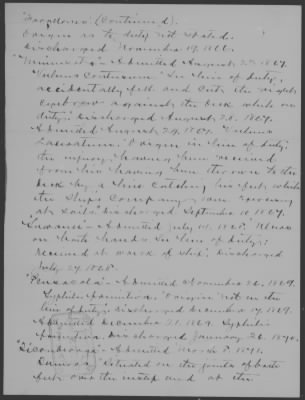 "Macedonia" (Continued).
Origin as to duty not stated.
Discharged November 19, 1866.
"Minnesota" - Admitted August 27, 1867.
"Vulnus Contusum." In line of duty,
accidentally fell and cut the right
eyebrow against the deck while on
duty; discharged August 28, 1867.
Admitted August 29, 1867. "Vulnus
Laceratum." Origin in line of duty:
the injury having been received
from his having been thrown to the
deck by a line catching his feet, while
the Ships Company were
at sails. Discharged September 10, 1867.
- Admitted July 10, 1868. Ulcers
on both hands in line of duty;
received at work of ship. Discharged
July 29, 1868.
"Pensacola" - Admitted November 26, 1869.
Syphilis Primitiva. Origin not in the
line of duty. Discharged December 19, 1869.
Admitted December 31, 1869. Syphilis
Primitiva. Discharged January 26, 1870.
"Ticonderoga" - Admitted March 8, 1871.
situated on the joints of both
feet over the instep and at the